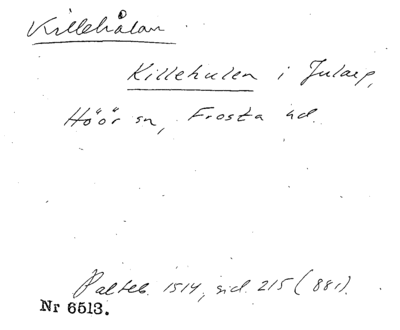 Killehålan
Killehulen i Jularp,
Höör sn, Frosta hd.
Palteb. 1514, sid. 215 (881).
Nr 6513.